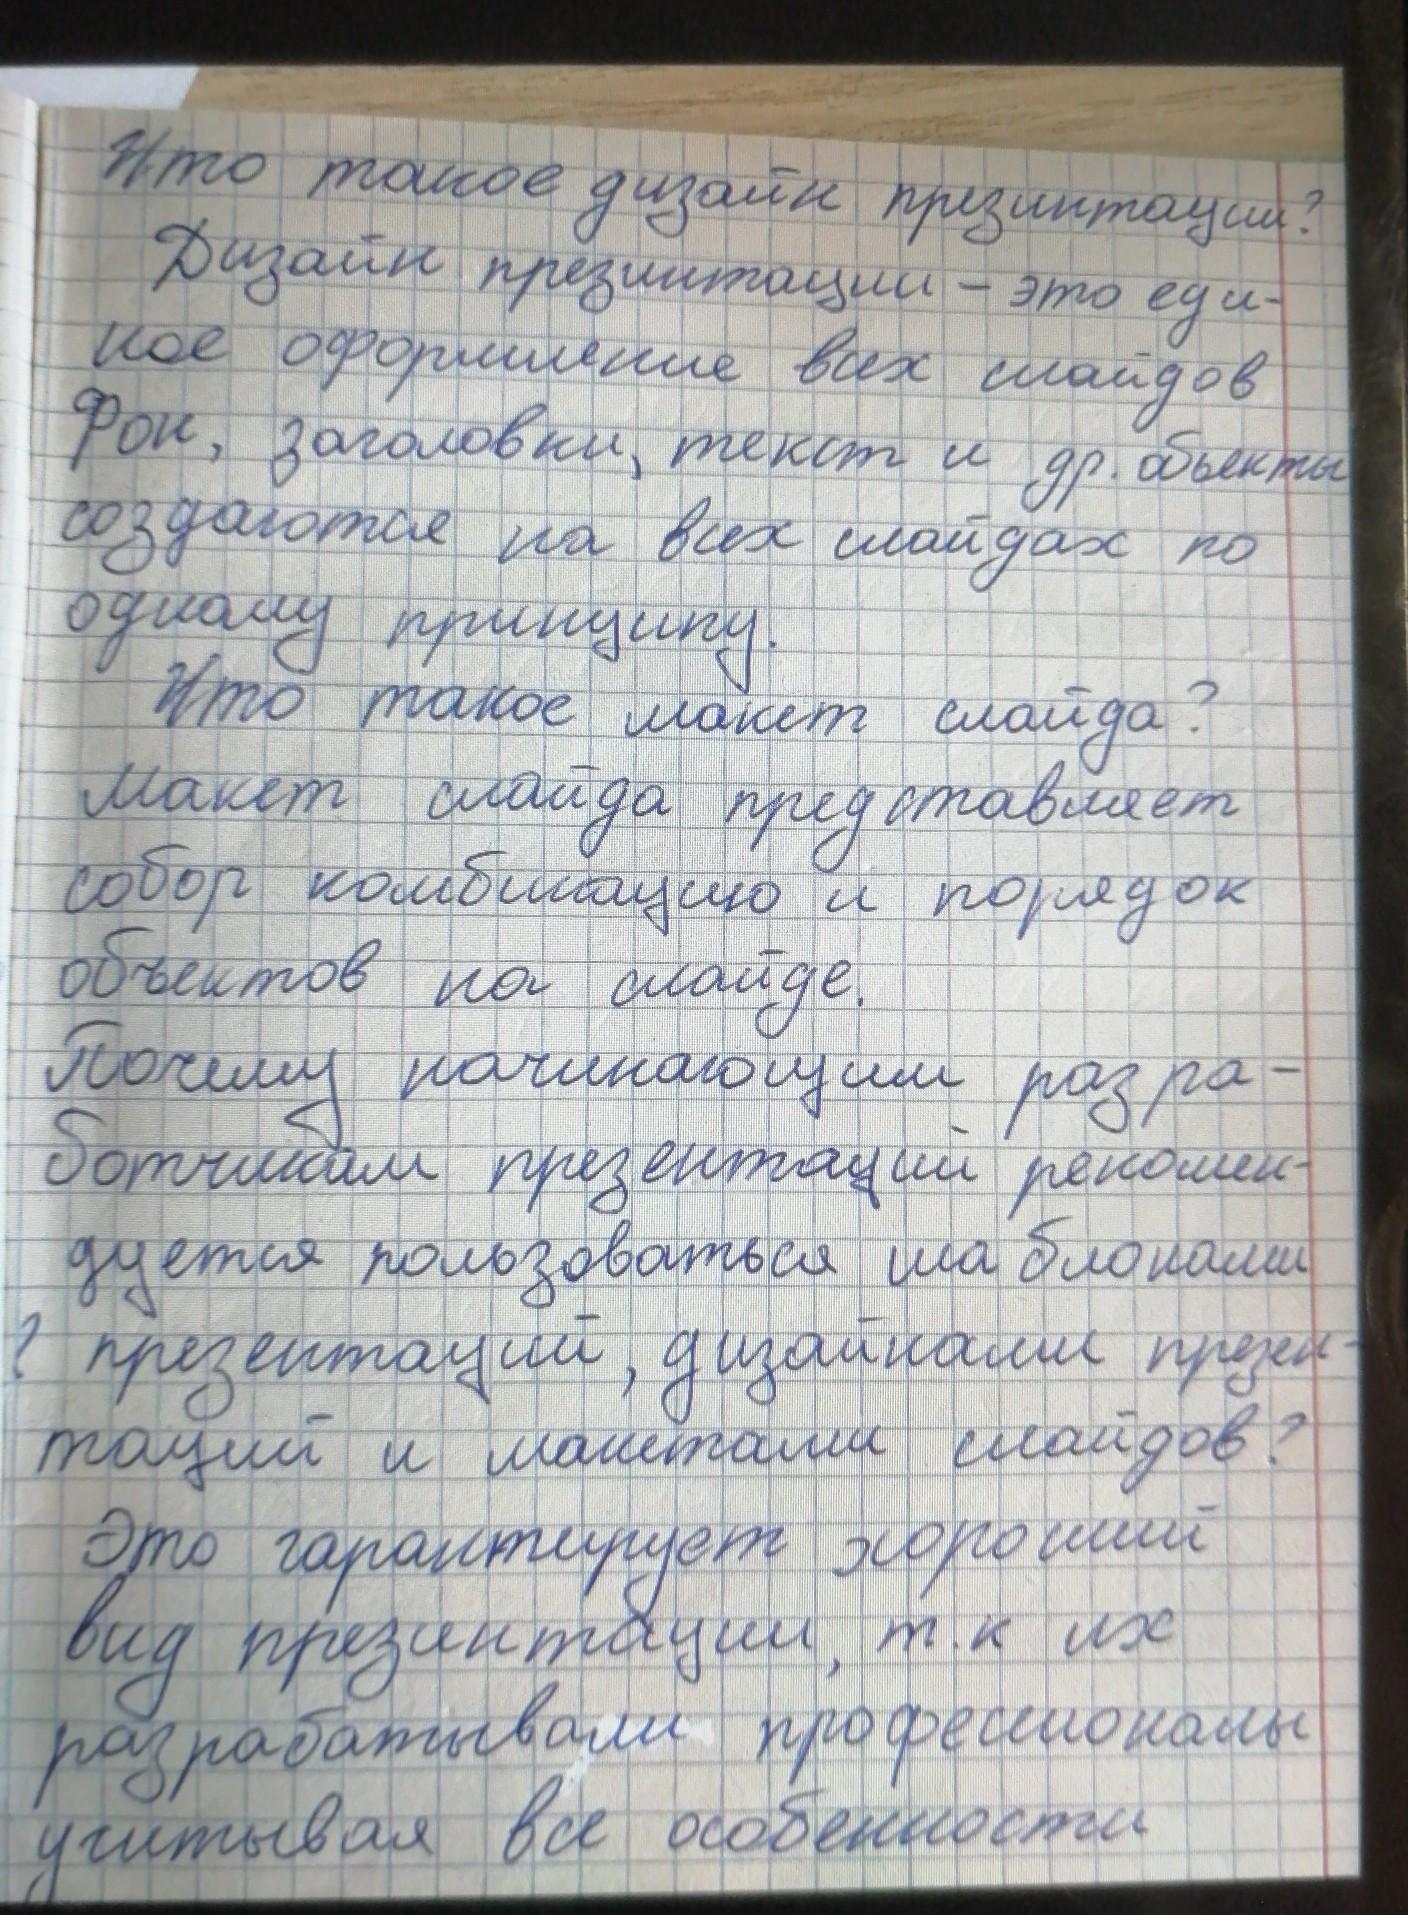 Что такое дизайн презинтации?
Дизайн презинтации - это еди-
ное оформление всех слайдов
Фон, заголовки, текст и др. обьекты
создаются на всех слайдах по
одному принципу.
Что такое макет слайда?
Макет слайда представляет
собор комбинацию и порядок
объектов на слайде.
Почему начинающим разра-
ботчикам презентаций рекомен-
дуется пользоваться шаблонами
? презентаций, дизайнами презен-
таций и макетами слайдов?
Это гарантирует хороший
вид презинтации, т.к их
разрабатывали професионалы
учитывая все особенности